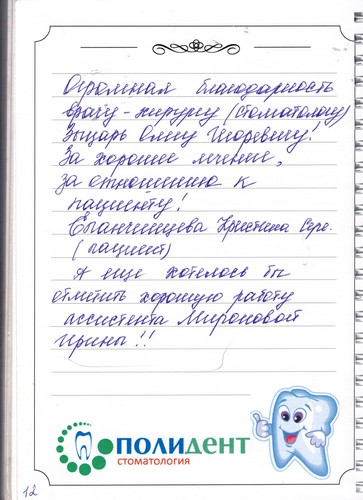 Огромная благодарность
врачу-хирургу (стоматологу)
Зыщарь Олегу Игоревичу!
За хорошее лечение,
за отношению к
пациенту!
Кристина Серг.
(пациент)
А еще хотелось бы
отметить хорошую работу
ассистента Мироновой
Ирины!!
ПОЛИДЕНТ
СТОМАТОЛОГИЯ
12